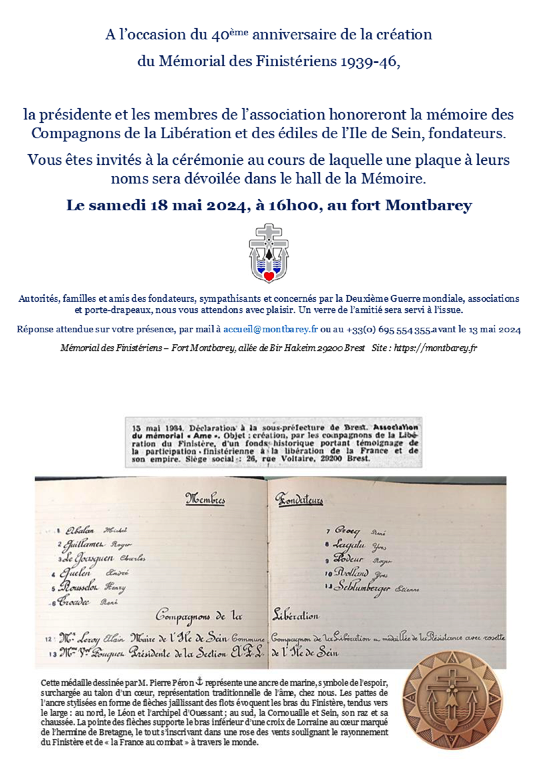 A l'occasion du 40ème anniversaire de la création
du Mémorial des Finistériens 1939-46,
la présidente et les membres de l'association honoreront la mémoire des
Compagnons de la Libération et des édiles de l'Ile de Sein, fondateurs.
Vous êtes invités à la cérémonie au cours de laquelle une plaque à leurs
noms sera dévoilée dans le hall de la Mémoire.
Le samedi 18 mai 2024, à 16h00, au fort Montbarey
Autorités, familles et amis des fondateurs, sympathisants et concernés par la Deuxième Guerre mondiale, associations
et porte-drapeaux, nous vous attendons avec plaisir. Un verre de l'amitié sera servi à l'issue.
Réponse attendue sur votre présence, par mail à accueil@montbarey.fr ou au +33(0) 695 554 355.avant le 13 mai 2024
Mémorial des Finistériens – Fort Montbarey, allée de Bir Hakeim 29200 Brest Site : https://montbarey.fr
15 mai 1984. Déclaration à la sous-préfecture de Brest. Association
du mémorial « Ame ». Objet : création, par les compagnons de la Libé-
ration du Finistère, d'un fonds historique portant témoignage de
la participation finistérienne à la libération de la France et de
son empire. Siège social : 26, rue Voltaire, 29200 Brest.
Membres Fondateurs
1 Abalan Michel
2 Guillamet Roger
3 Le Goasguen Charles
4 Quelen André
5 Rousselot Henry
6 Croadec René
7 René
8 Lagatu Yves
9 Bodeur Roger
10 Rolland Yves
11 Schlumberger Etienne
Compagnons de la Libération
12 Mr Leroy Alain Maire de l'Ile de Sein Commune Compagnon de la Libération a médaillée de la Résistance avec rosette
13 Mme Vve Fouquet Présidente de la Section de l'Ile de Sein
Cette médaille dessinée par M. Pierre Péron ⚓ représente une ancre de marine, symbole de l'espoir,
surchargée au talon d'un cœur, représentation traditionnelle de l'âme, chez nous. Les pattes de
l'ancre stylisées en forme de flèches jaillissant des flots évoquent les bras du Finistère, tendus vers
le large : au nord, le Léon et l'archipel d'Ouessant ; au sud, la Cornouaille et Sein, son raz et sa
chaussée. La pointe des flèches supporte le bras inférieur d'une croix de Lorraine au cœur marqué
de l'hermine de Bretagne, le tout s'inscrivant dans une rose des vents soulignant le rayonnement
du Finistère et de « la France au combat » à travers le monde.